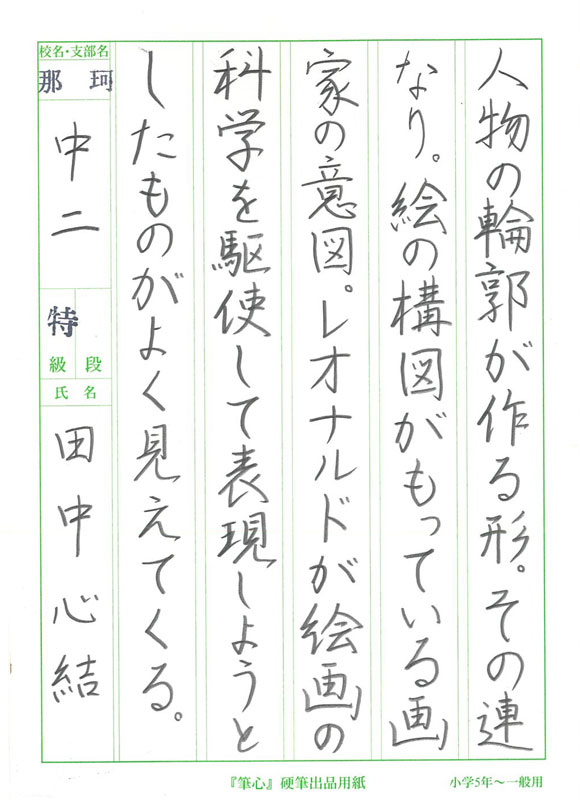 人物の輪郭が作る形。その連
なり。絵の構図がもっている画
家の意図。レオナルドが絵画の
科学を駆使して表現しようと
したものがよく見えてくる。
校名・支部名
那珂
中二
特
級 段
氏名
田中心結
『筆心』硬筆出品用紙
小学5年〜一般用